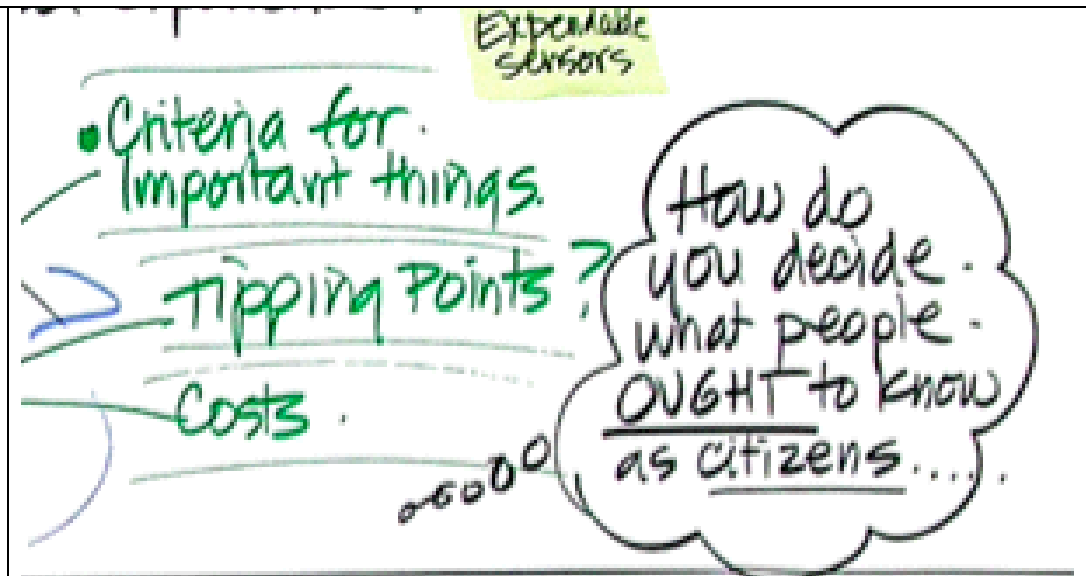 Expendable
sensors
•Criteria for
Important things.
Tipping Points?
Costs.
How do
you decide
what people
OUGHT to know
as citizens.....